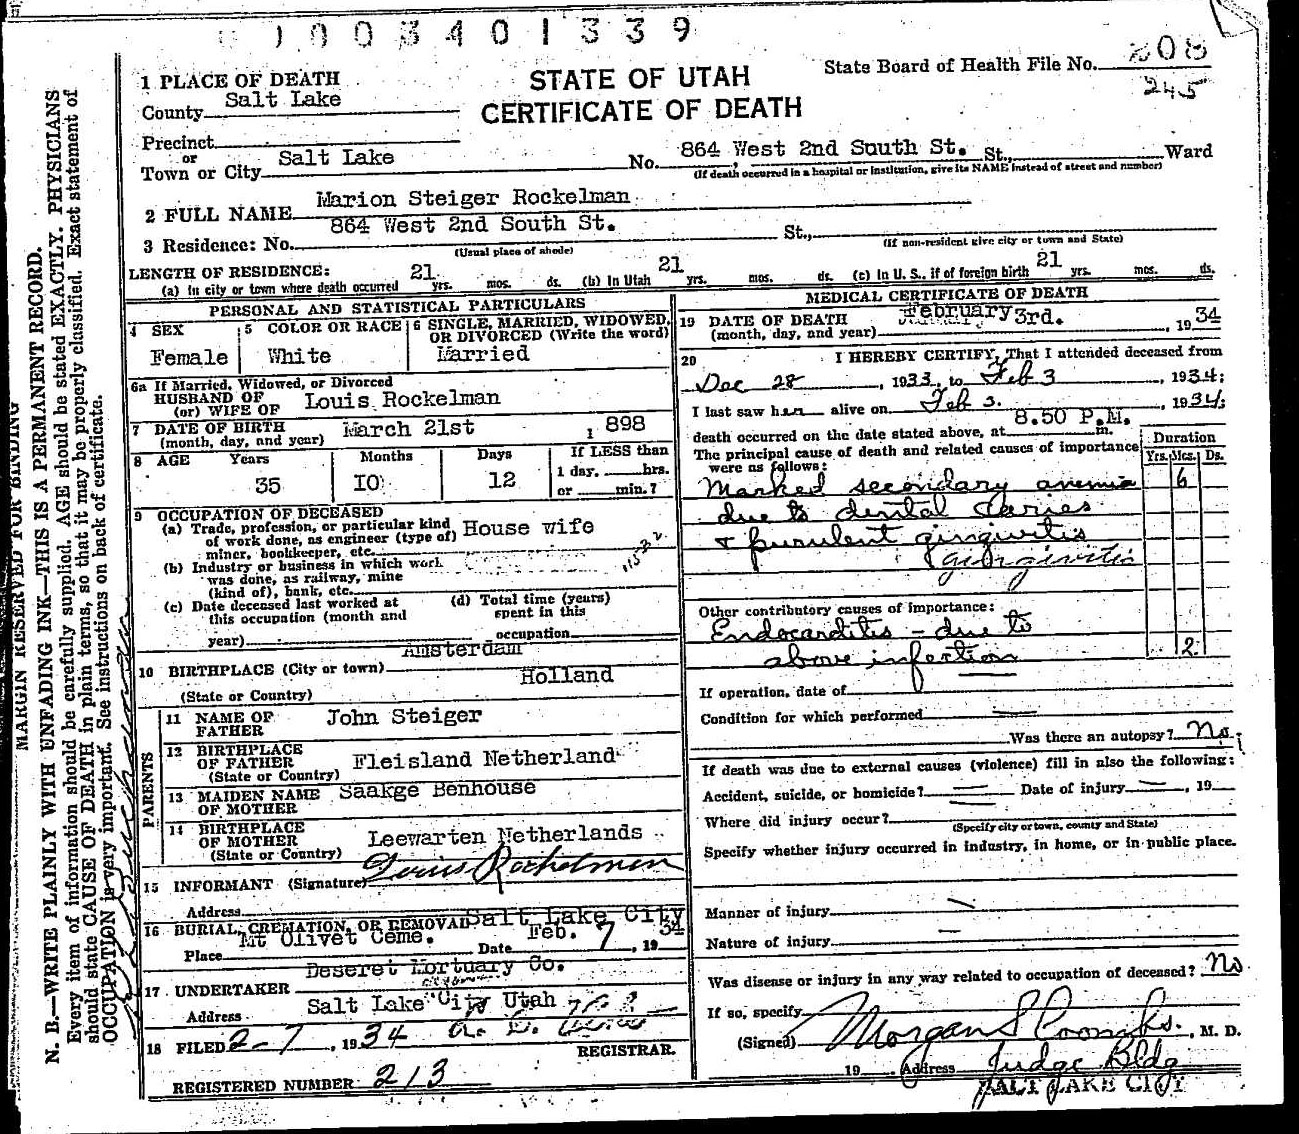 1003401339
STATE OF UTAH
CERTIFICATE OF DEATH
State Board of Health File No. 808
245
1 PLACE OF DEATH
County Salt Lake
Precinct
or
Town or City Salt Lake No. 864 West 2nd South St. St., Ward
(If death occurred in a hospital or institution, give its NAME instead of street and number)
2 FULL NAME Marion Steiger Rockelman
3 Residence: No. 864 West 2nd South St. St.,
(Usual place of abode) (If non-resident give city or town and State)
LENGTH OF RESIDENCE:
(a) In city or town where death occurred 21 yrs. mos. ds. (b) In Utah 21 yrs. mos. ds. (c) In U. S., if of foreign birth 21 yrs. mos. ds.
PERSONAL AND STATISTICAL PARTICULARS
4 SEX
Female
5 COLOR OR RACE
White
6 SINGLE, MARRIED, WIDOWED,
OR DIVORCED (Write the word)
Married
6a If Married, Widowed, or Divorced
HUSBAND OF
(or) WIFE OF Louis Rockelman
7 DATE OF BIRTH
(month, day, and year) March 21st 1898
8 AGE Years Months Days If LESS than
1 day, hrs.
or min.?
35 I0 12
9 OCCUPATION OF DECEASED
(a) Trade, profession, or particular kind
of work done, as engineer (type of)
miner, bookkeeper, etc. House wife
(b) Industry or business in which work
was done, as railway, mine
(kind of), bank, etc.
(c) Date deceased last worked at
this occupation (month and
year)
(d) Total time (years)
spent in this
occupation
10 BIRTHPLACE (City or town) Amsterdam
(State or Country) Holland
PARENTS
11 NAME OF
FATHER John Steiger
12 BIRTHPLACE
OF FATHER
(State or Country) Fleisland Netherland
13 MAIDEN NAME
OF MOTHER Saakge Benhouse
14 BIRTHPLACE
OF MOTHER
(State or Country) Leewarten Netherlands
15 INFORMANT (Signature) Louis Rockelman
Address Salt Lake City
16 BURIAL, CREMATION, OR REMOVAL
Place Mt Olivet Ceme. Date Feb. 7, 1934
17 UNDERTAKER Deseret Mortuary Co.
Address Salt Lake City Utah
18 FILED 2-7, 1934
REGISTRAR.
REGISTERED NUMBER 213
MEDICAL CERTIFICATE OF DEATH
19 DATE OF DEATH
(month, day, and year) February 3rd., 1934
20 I HEREBY CERTIFY, That I attended deceased from
Dec 28, 1933, to Feb 3, 1934;
I last saw her alive on Feb 3, 1934;
death occurred on the date stated above, at 8.50 P.M. m.
The principal cause of death and related causes of importance
were as follows:
Duration
Yrs. Mos. Ds.
Marked secondary anemia 6
due to dental caries
& purulent gingivitis
gingivitis
Other contributory causes of importance:
Endocarditis - due to
above infection 2
If operation, date of
Condition for which performed
Was there an autopsy? No
If death was due to external causes (violence) fill in also the following:
Accident, suicide, or homicide? Date of injury, 19
Where did injury occur?
(Specify city or town, county and State)
Specify whether injury occurred in industry, in home, or in public place.
Manner of injury
Nature of injury
Was disease or injury in any way related to occupation of deceased? No
If so, specify
(Signed) Morgan S Coombs, M. D.
19 Address Judge Bldg
SALT LAKE CITY
MARGIN RESERVED FOR BINDING
N. B.—WRITE PLAINLY WITH UNFADING INK—THIS IS A PERMANENT RECORD.
Every item of information should be carefully supplied. AGE should be stated EXACTLY. PHYSICIANS
should state CAUSE OF DEATH in plain terms, so that it may be properly classified. Exact statement of
OCCUPATION is very important. See instructions on back of certificate.